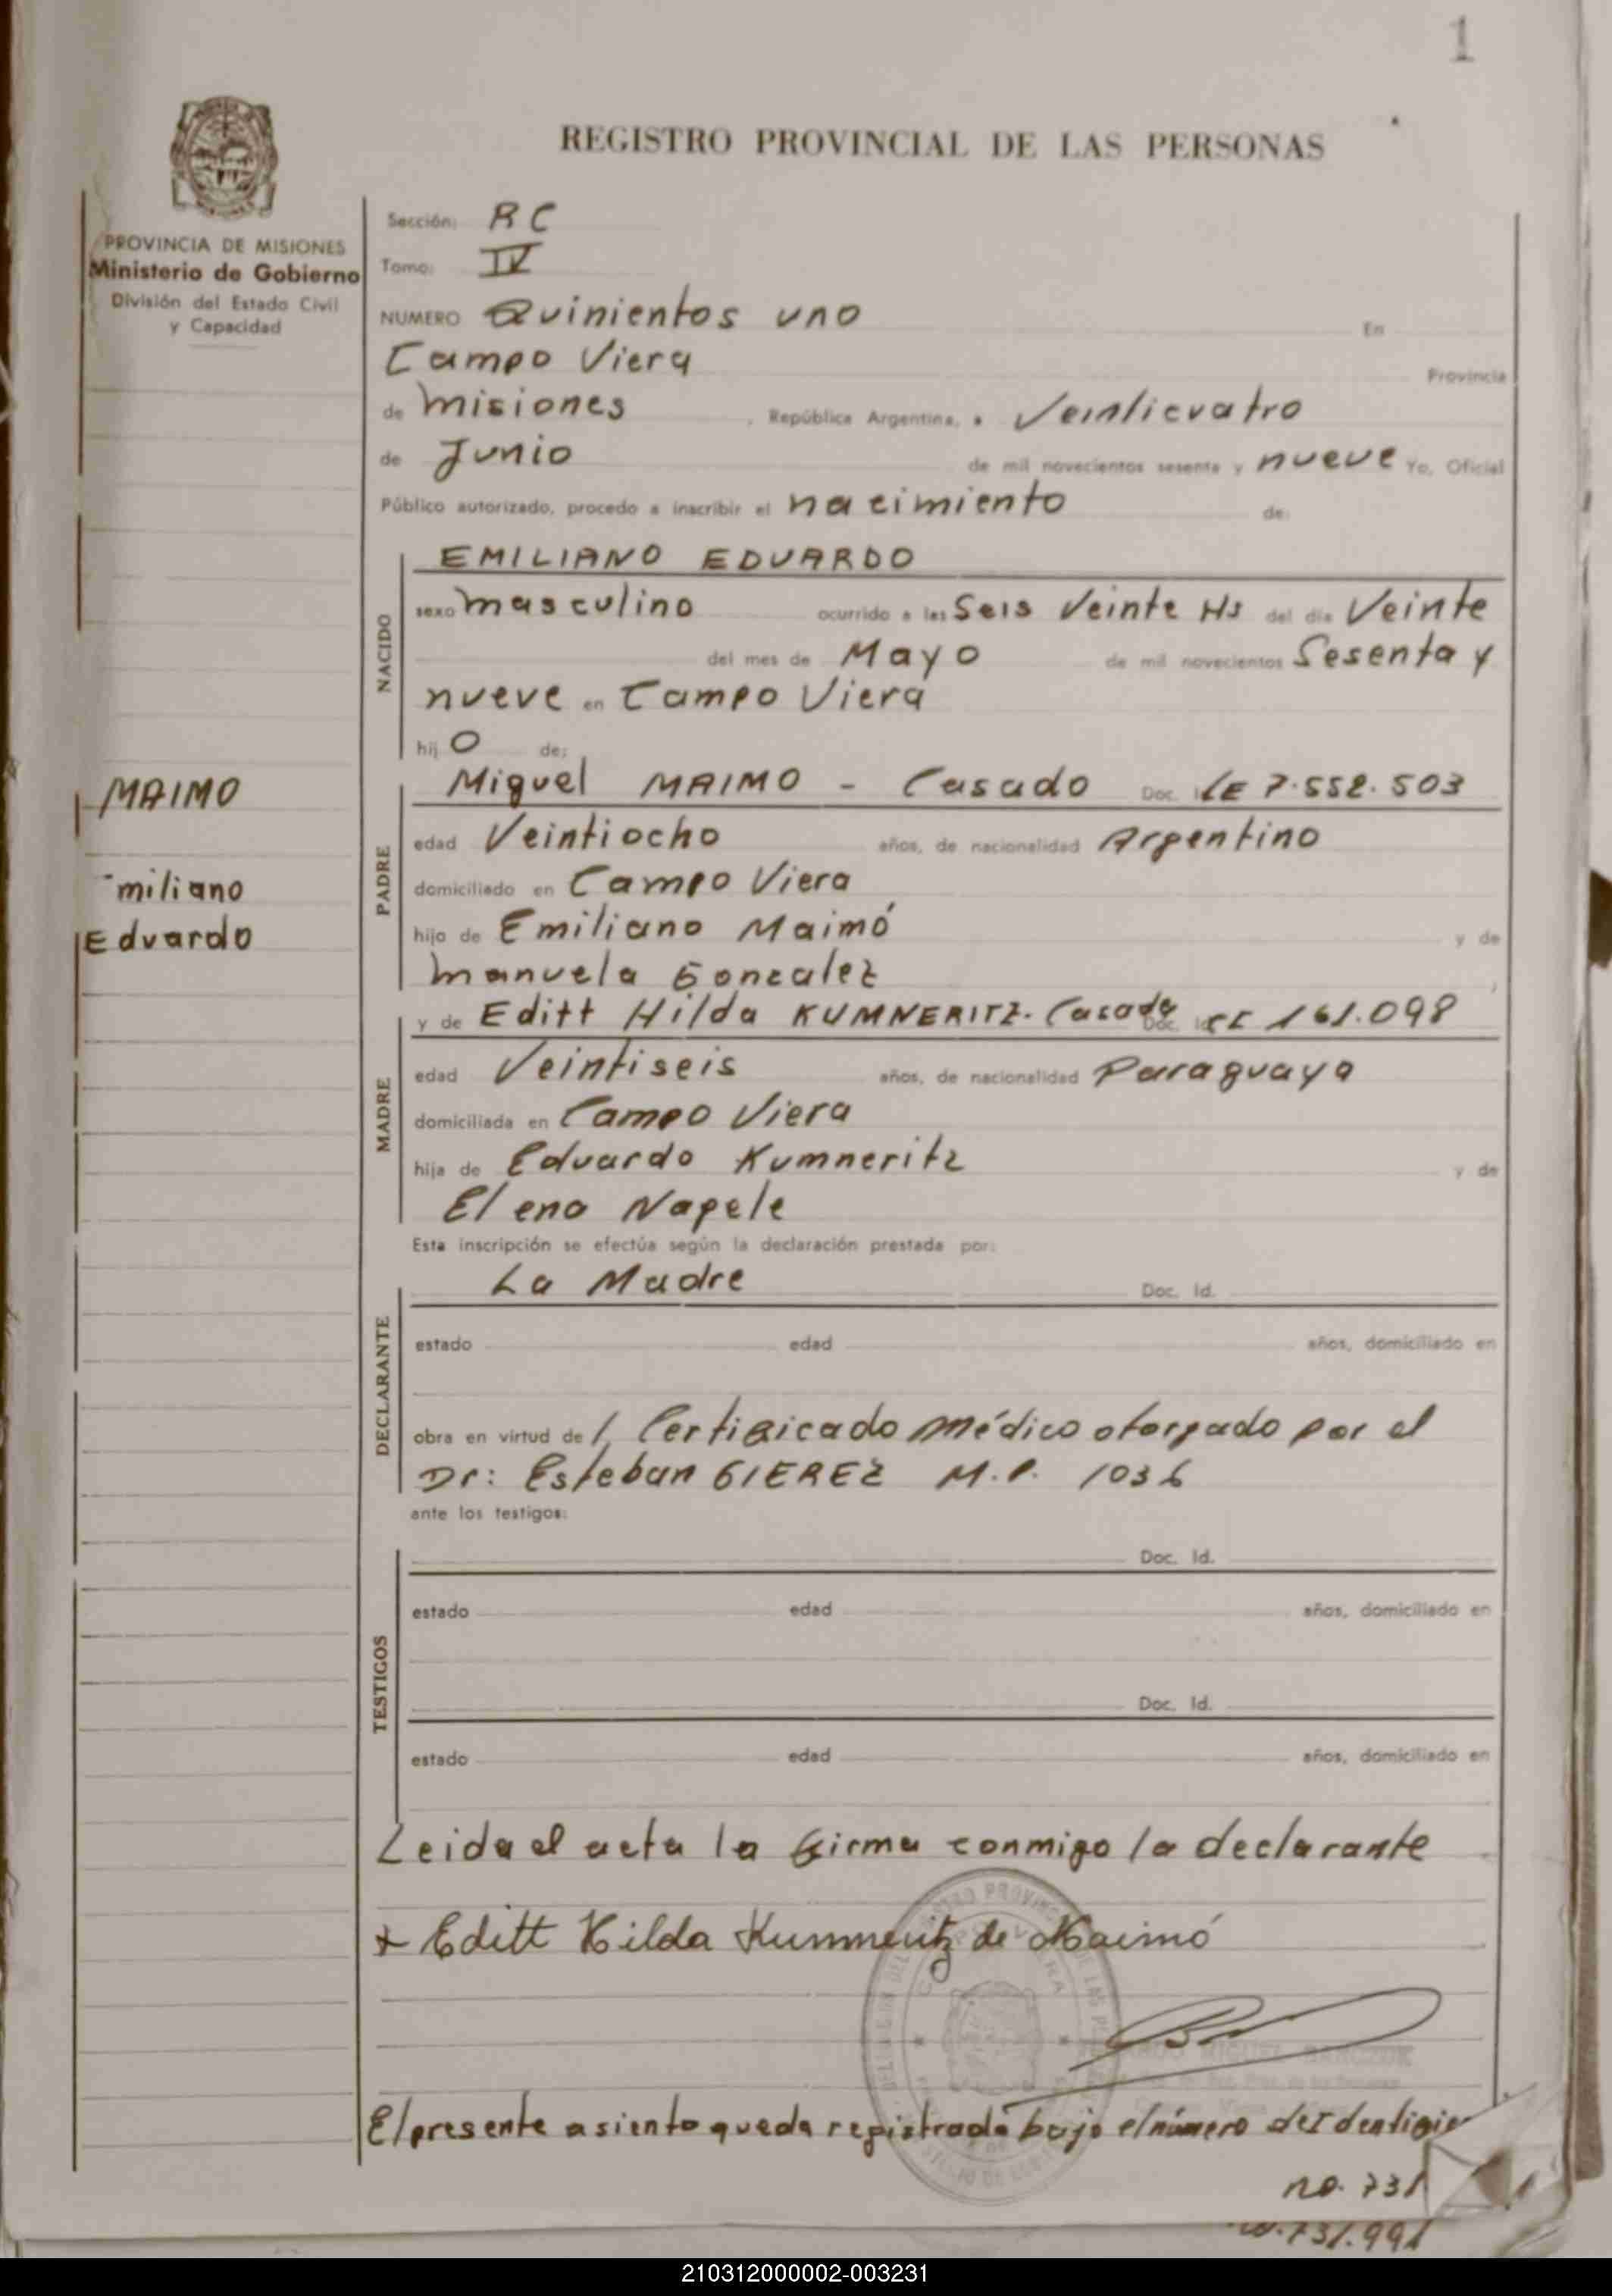 1
REGISTRO PROVINCIAL DE LAS PERSONAS
PROVINCIA DE MISIONES
Ministerio de Gobierno
División del Estado Civil
y Capacidad
Sección: RC
Tomo: IV
NUMERO Quinientos uno En
Campo Viera Provincia
de Misiones, República Argentina, a Veinticuatro
de Junio de mil novecientos sesenta y nueve Yo, Oficial
Público autorizado, procedo a inscribir el nacimiento de:
NACIDO
EMILIANO EDUARDO
sexo masculino ocurrido a las Seis Veinte Hs del día Veinte
del mes de Mayo de mil novecientos Sesenta y
nueve en Campo Viera
hijo de:
MAIMO
miliano
Eduardo
PADRE
Miguel MAIMO - Casado Doc. LE 7.552.503
edad Veintiocho años, de nacionalidad Argentino
domiciliado en Campo Viera
hijo de Emiliano Maimó y de
Manuela Gonzalez
MADRE
y de Editt Hilda KUMNERITZ- Casada Doc. 161.098
edad Veintiseis años, de nacionalidad Paraguaya
domiciliada en Campo Viera
hija de Eduardo Kumneritz y de
Elena Napele
Esta inscripción se efectúa según la declaración prestada por:
DECLARANTE
La Madre Doc. Id.
estado edad años, domiciliado en
obra en virtud de Certificado médico otorgado por el
Dr: Esteban GIEREZ M.P. 1036
ante los testigos:
TESTIGOS
Doc. Id.
estado edad años, domiciliado en
Doc. Id.
estado edad años, domiciliado en
Leida el acta la firma conmigo la declarante
Editt Hilda Kumneritz de Maimó
El presente asiento queda registrado bajo el número
no. 731
731.991
210312000002-003231